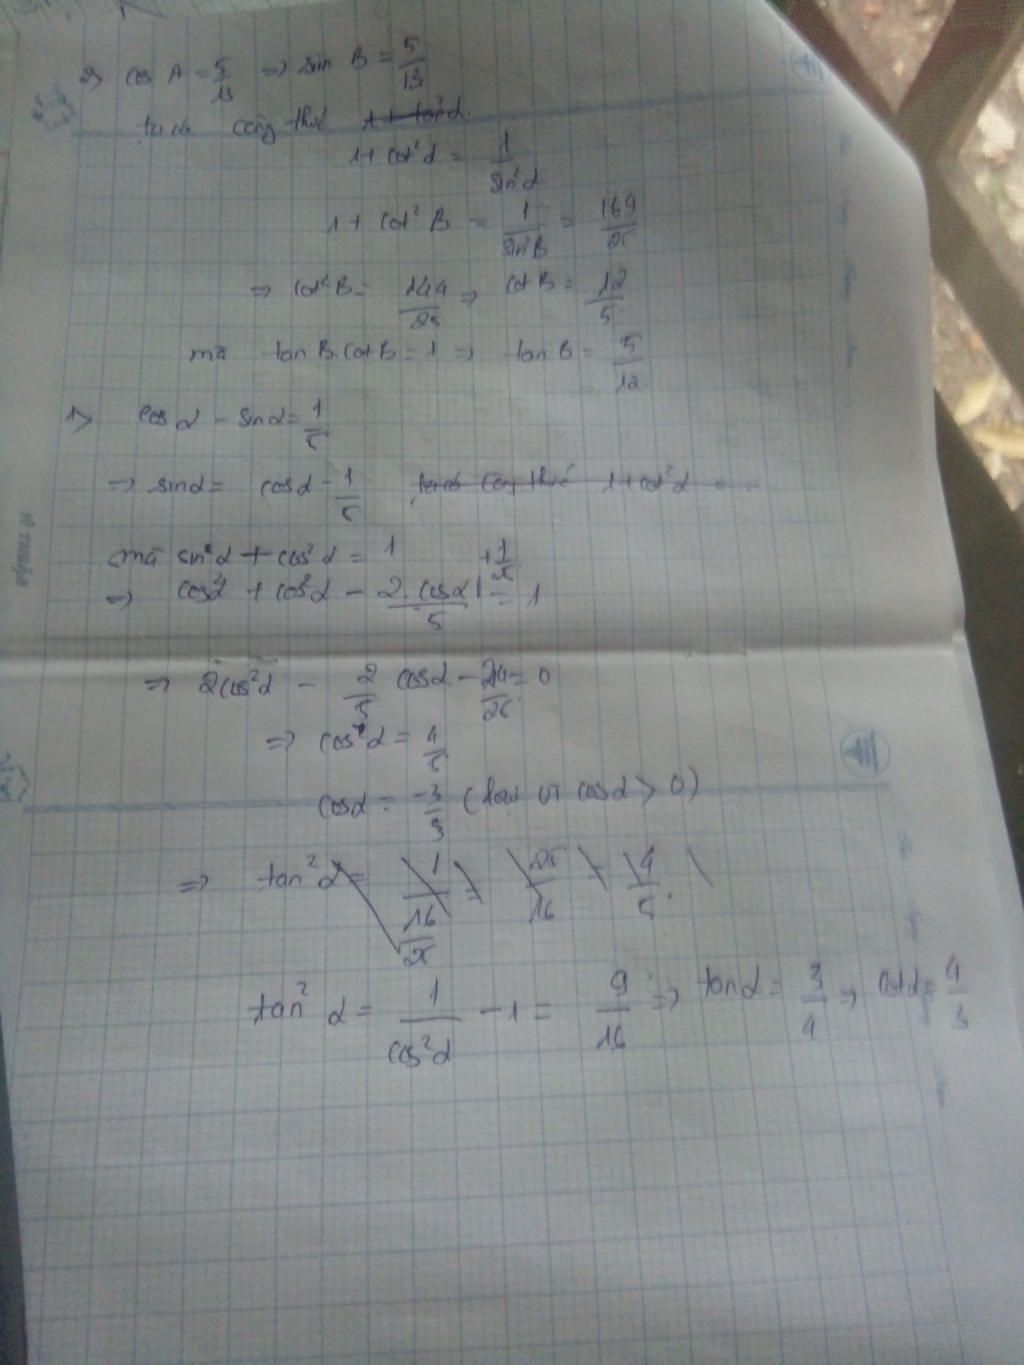 2) cos A = 5/13 => sin B = 5/13
ta có công thức 1 + tan²α
1 + cot²α = 1/sin²α
1 + cot² B = 1/sin²B = 169/25
=> cot²B = 144/25 => cot B = 12/5
mà tan B. cot B = 1 => tan B = 5/12.
1) cos α - sin α = 1/5
=> sin α = cos α - 1/5 ta có công thức 1 + cot²α = ...
mà sin²α + cos²α = 1
=> cos²α + cos²α - 2.cosα/5 + 1/25 = 1
=> 2cos²α - 2/5 cosα - 24/25 = 0
=> cos α = 4/5
cosα = -3/5 (loại vì cosα > 0)
=> tan²α = 1/16/25 = 25/16 - 4/5.
tan²α = 1/cos²α - 1 = 9/16 => tanα = 3/4 => cotα = 4/3